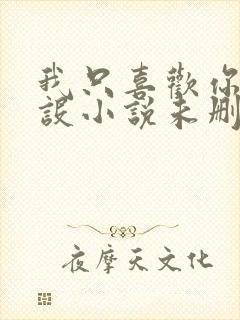 我只喜歡你
設小說未刪
夜摩天文化